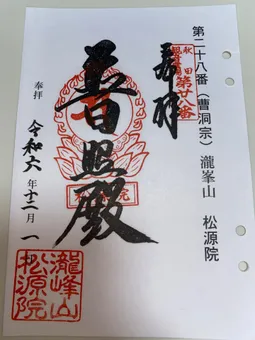 第二十八番（曹洞宗）瀧峯山 松源院
奉拝
秋田
第廿八番
普照殿
奉拝
令和六年十二月一日
瀧峰山
松源院